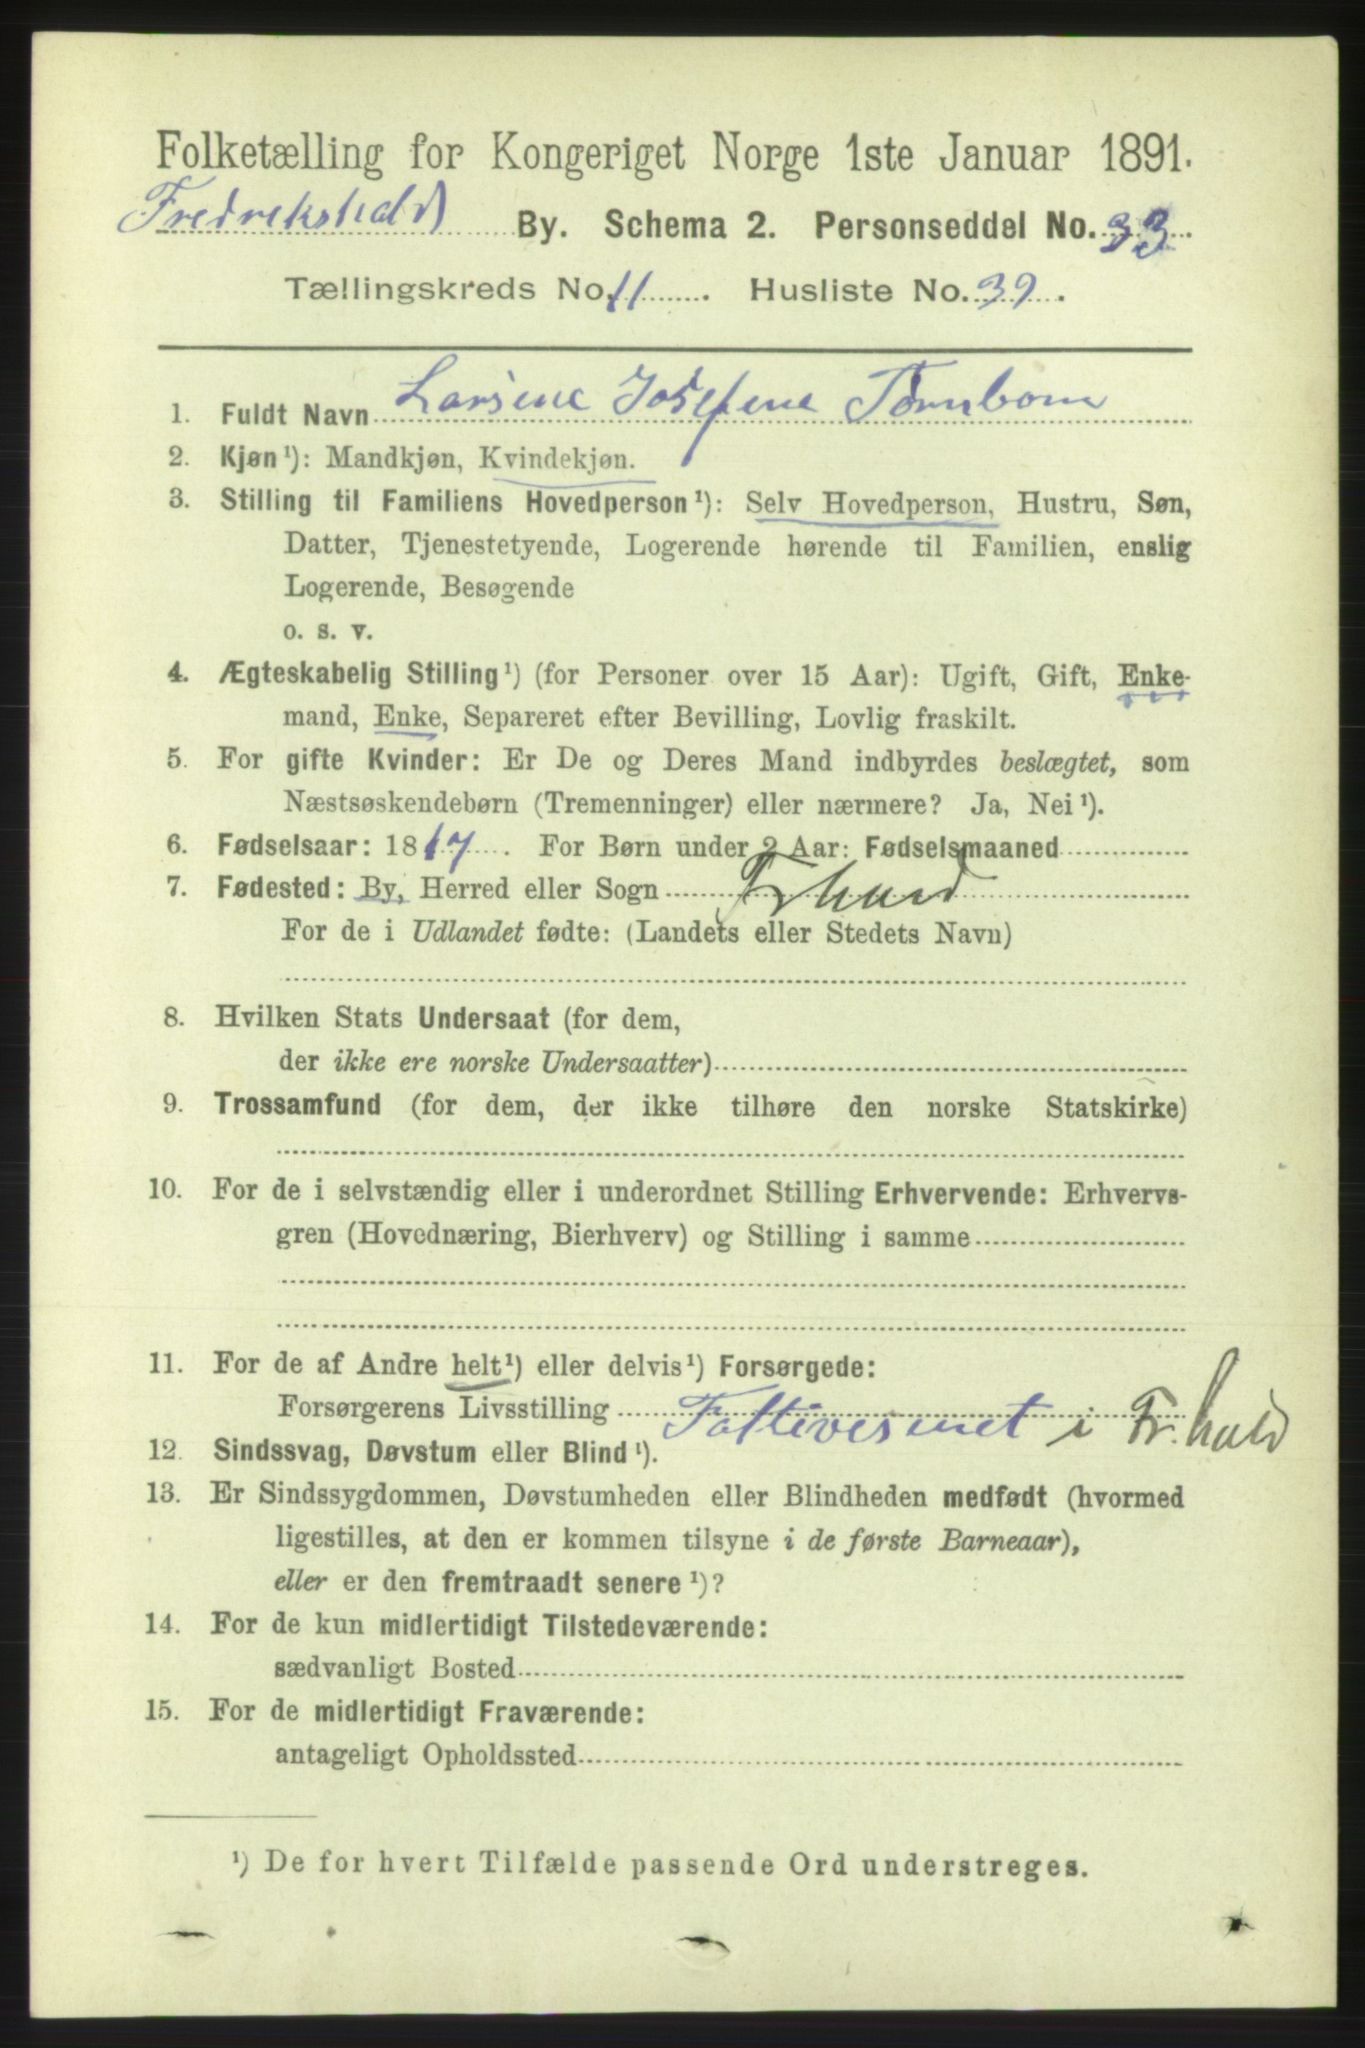 Folketælling for Kongeriget Norge 1ste Januar 1891.
Fredrekshald By. Schema 2. Personseddel No. 33.
Tællingskreds No. 11. Husliste No. 39.
1. Fuldt Navn Larsine Josefene Törnbom
2. Kjøn ¹): Mandkjøn, Kvindekjøn.
3. Stilling til Familiens Hovedperson ¹): Selv Hovedperson, Hustru, Søn,
Datter, Tjenestetyende, Logerende hørende til Familien, enslig
Logerende, Besøgende
o. s. v.
4. Ægteskabelig Stilling ¹) (for Personer over 15 Aar): Ugift, Gift, Enke-
mand, Enke, Separeret efter Bevilling, Lovlig fraskilt.
5. For gifte Kvinder: Er De og Deres Mand indbyrdes beslægtet, som
Næstsøskendebørn (Tremenninger) eller nærmere? Ja, Nei ¹).
6. Fødselsaar: 1817. For Børn under 2 Aar: Fødselsmaaned
7. Fødested: By, Herred eller Sogn Frhald
For de i Udlandet fødte: (Landets eller Stedets Navn)
8. Hvilken Stats Undersaat (for dem,
der ikke ere norske Undersaatter)
9. Trossamfund (for dem, der ikke tilhøre den norske Statskirke)
10. For de i selvstændig eller i underordnet Stilling Erhvervende: Erhvervs-
gren (Hovednæring, Bierhverv) og Stilling i samme
11. For de af Andre helt ¹) eller delvis ¹) Forsørgede:
Forsørgerens Livsstilling Fattivesenet i Fr.hald
12. Sindssvag, Døvstum eller Blind ¹).
13. Er Sindssygdommen, Døvstumheden eller Blindheden medfødt (hvormed
ligestilles, at den er kommen tilsyne i de første Barneaar),
eller er den fremtraadt senere ¹)?
14. For de kun midlertidigt Tilstedeværende:
sædvanligt Bosted
15. For de midlertidigt Fraværende:
antageligt Opholdssted
¹) De for hvert Tilfælde passende Ord understreges.